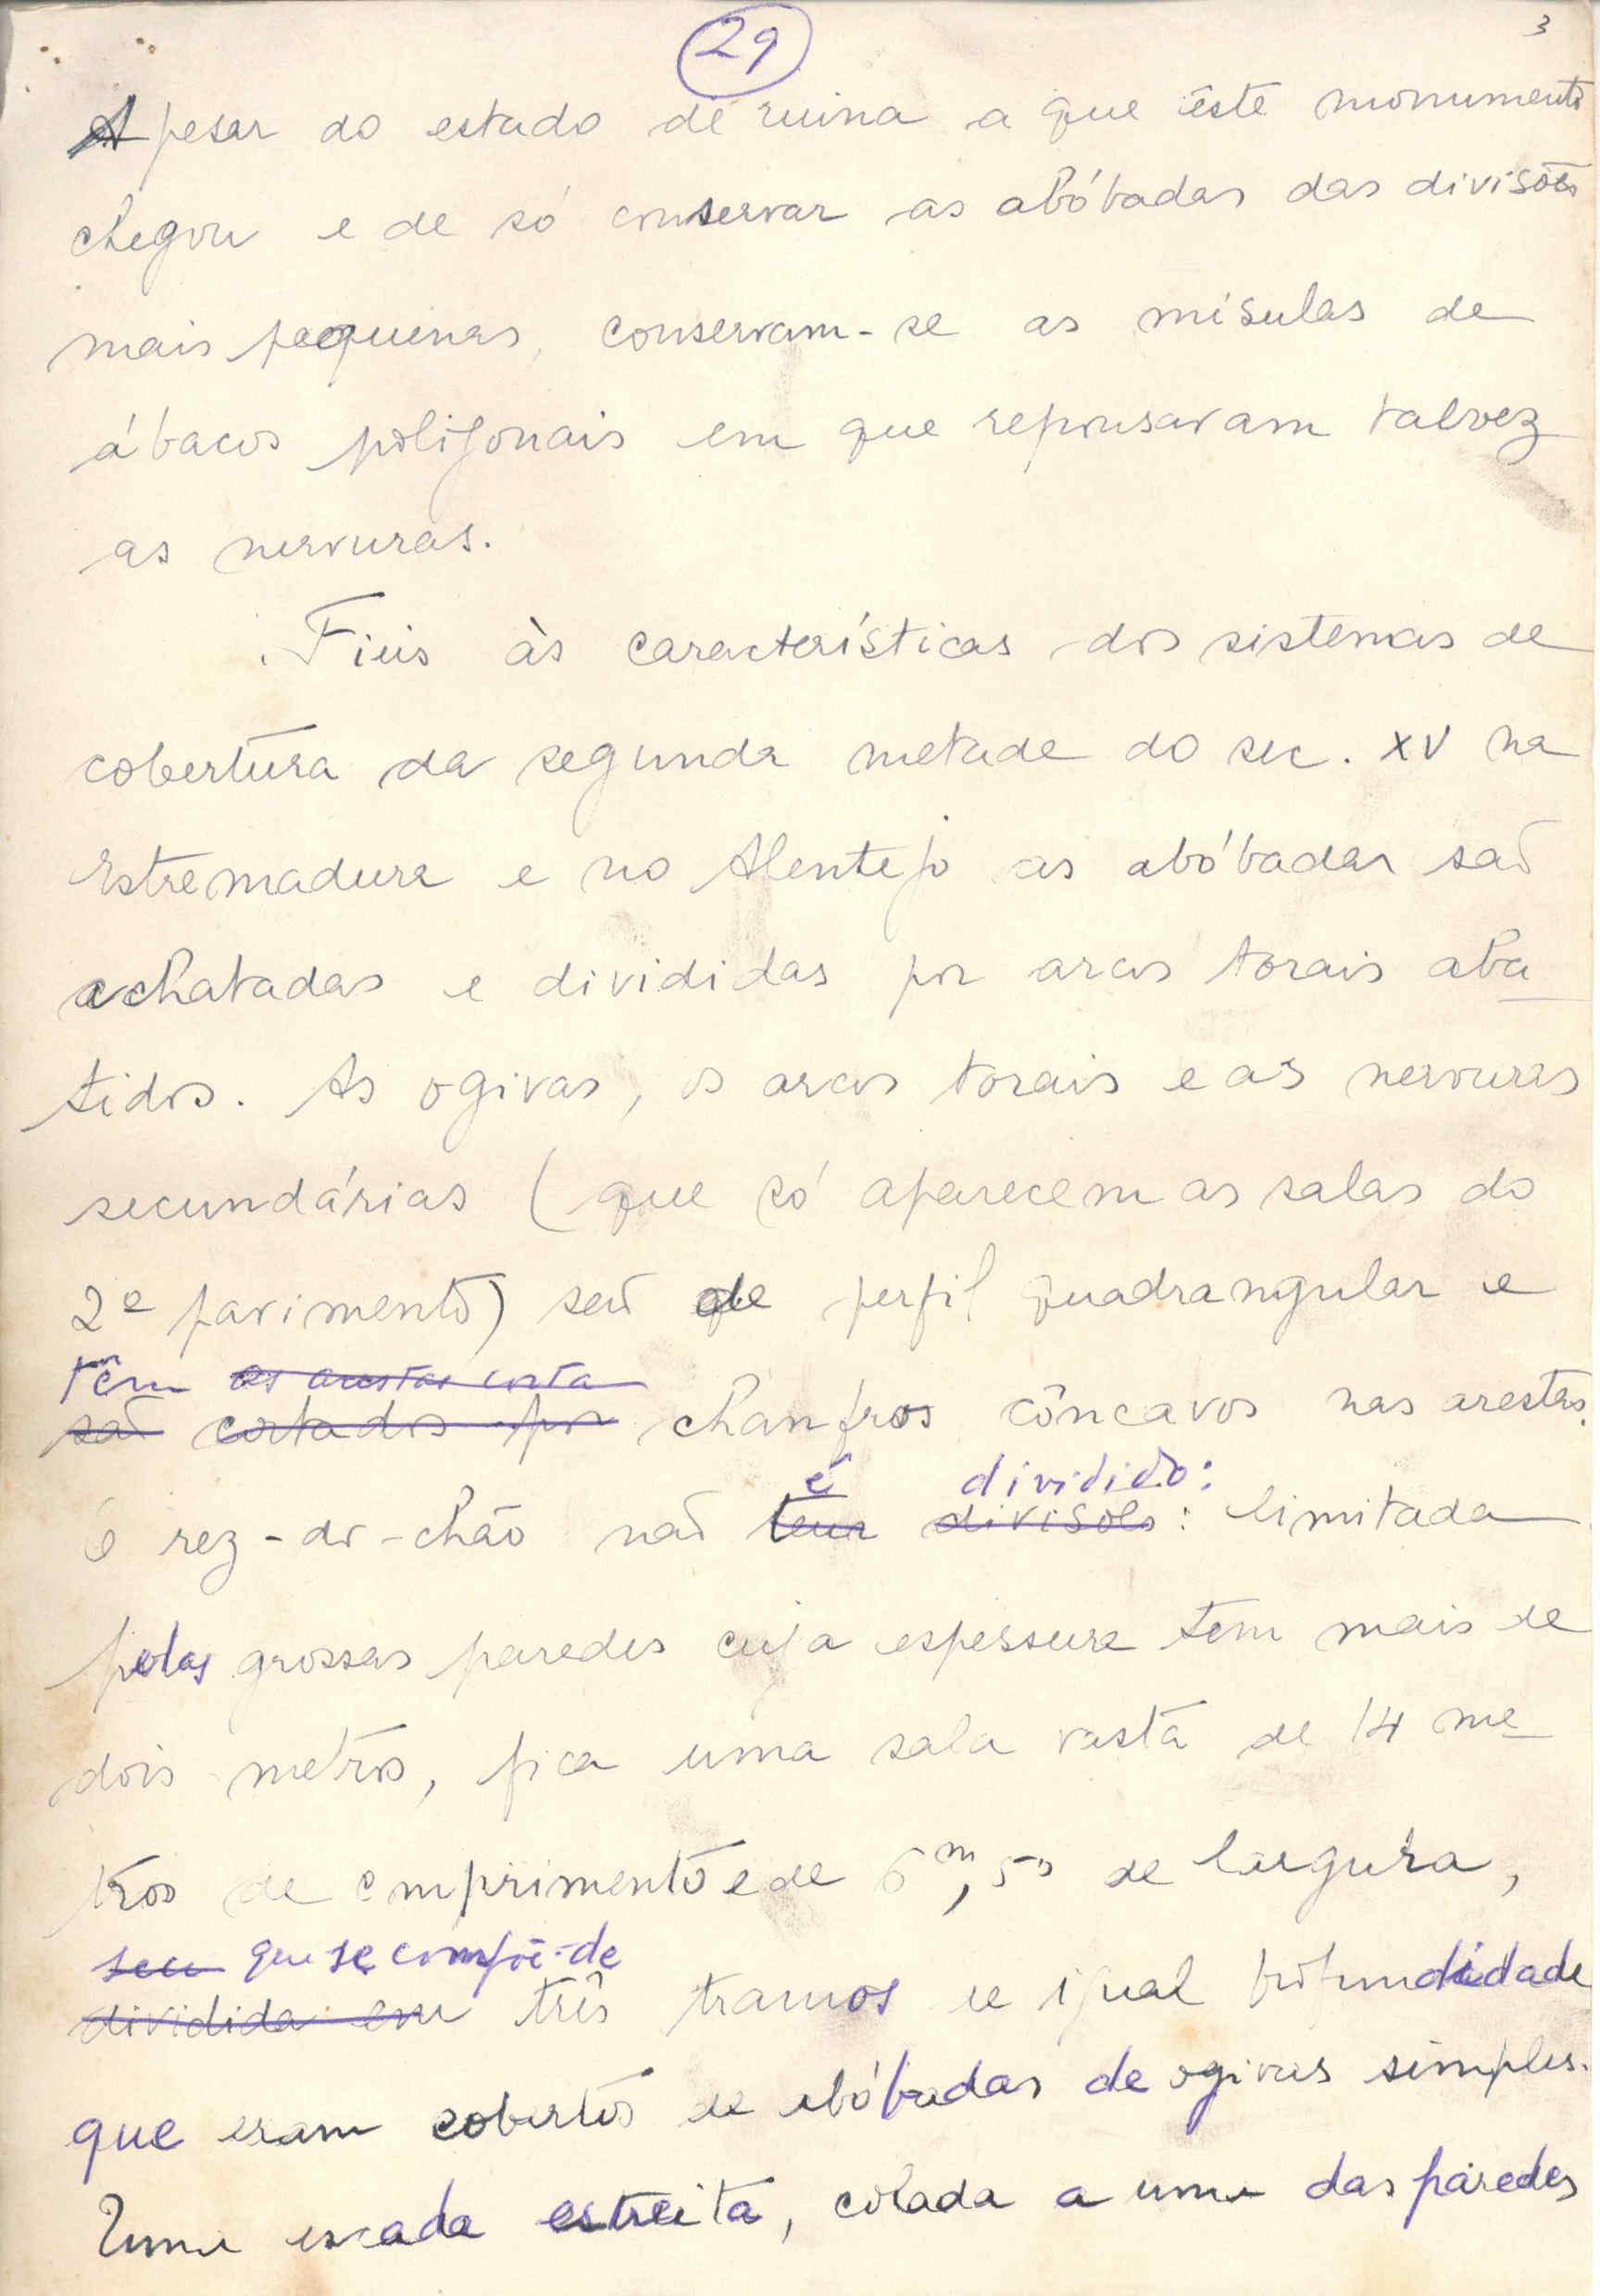 29
3
Apesar do estado de ruina a que êste monumento
chegou e de só conservar as abóbadas das divisões
mais pequenas, conservam-se as mísulas de
ábacos poligonais em que repousavam talvez
as nervuras.
Fiéis às características dos sistemas de
cobertura da segunda metade do sec. XV na
Estremadura e no Alentejo as abóbadas são
achatadas e divididas por arcos torais aba
tidos. As ogivas, os arcos torais e as nervuras
secundárias (que só aparecem as salas do
2º pavimento) são de perfil quadrangular e
têm as arestas corta
são cortados por chanfros côncavos nas arestas.
é dividido:
O rez-do-chão não tem divisões: limitada
pelas grossas paredes cuja espessura tem mais de
dois metros, fica uma sala vasta de 14 me
tros de comprimento e de 6m,50 de largura,
que se compõe de
dividida em três tramos de igual profundidade
que eram cobertos de abóbadas de ogivas simples.
Uma escada estreita, colada a uma das paredes